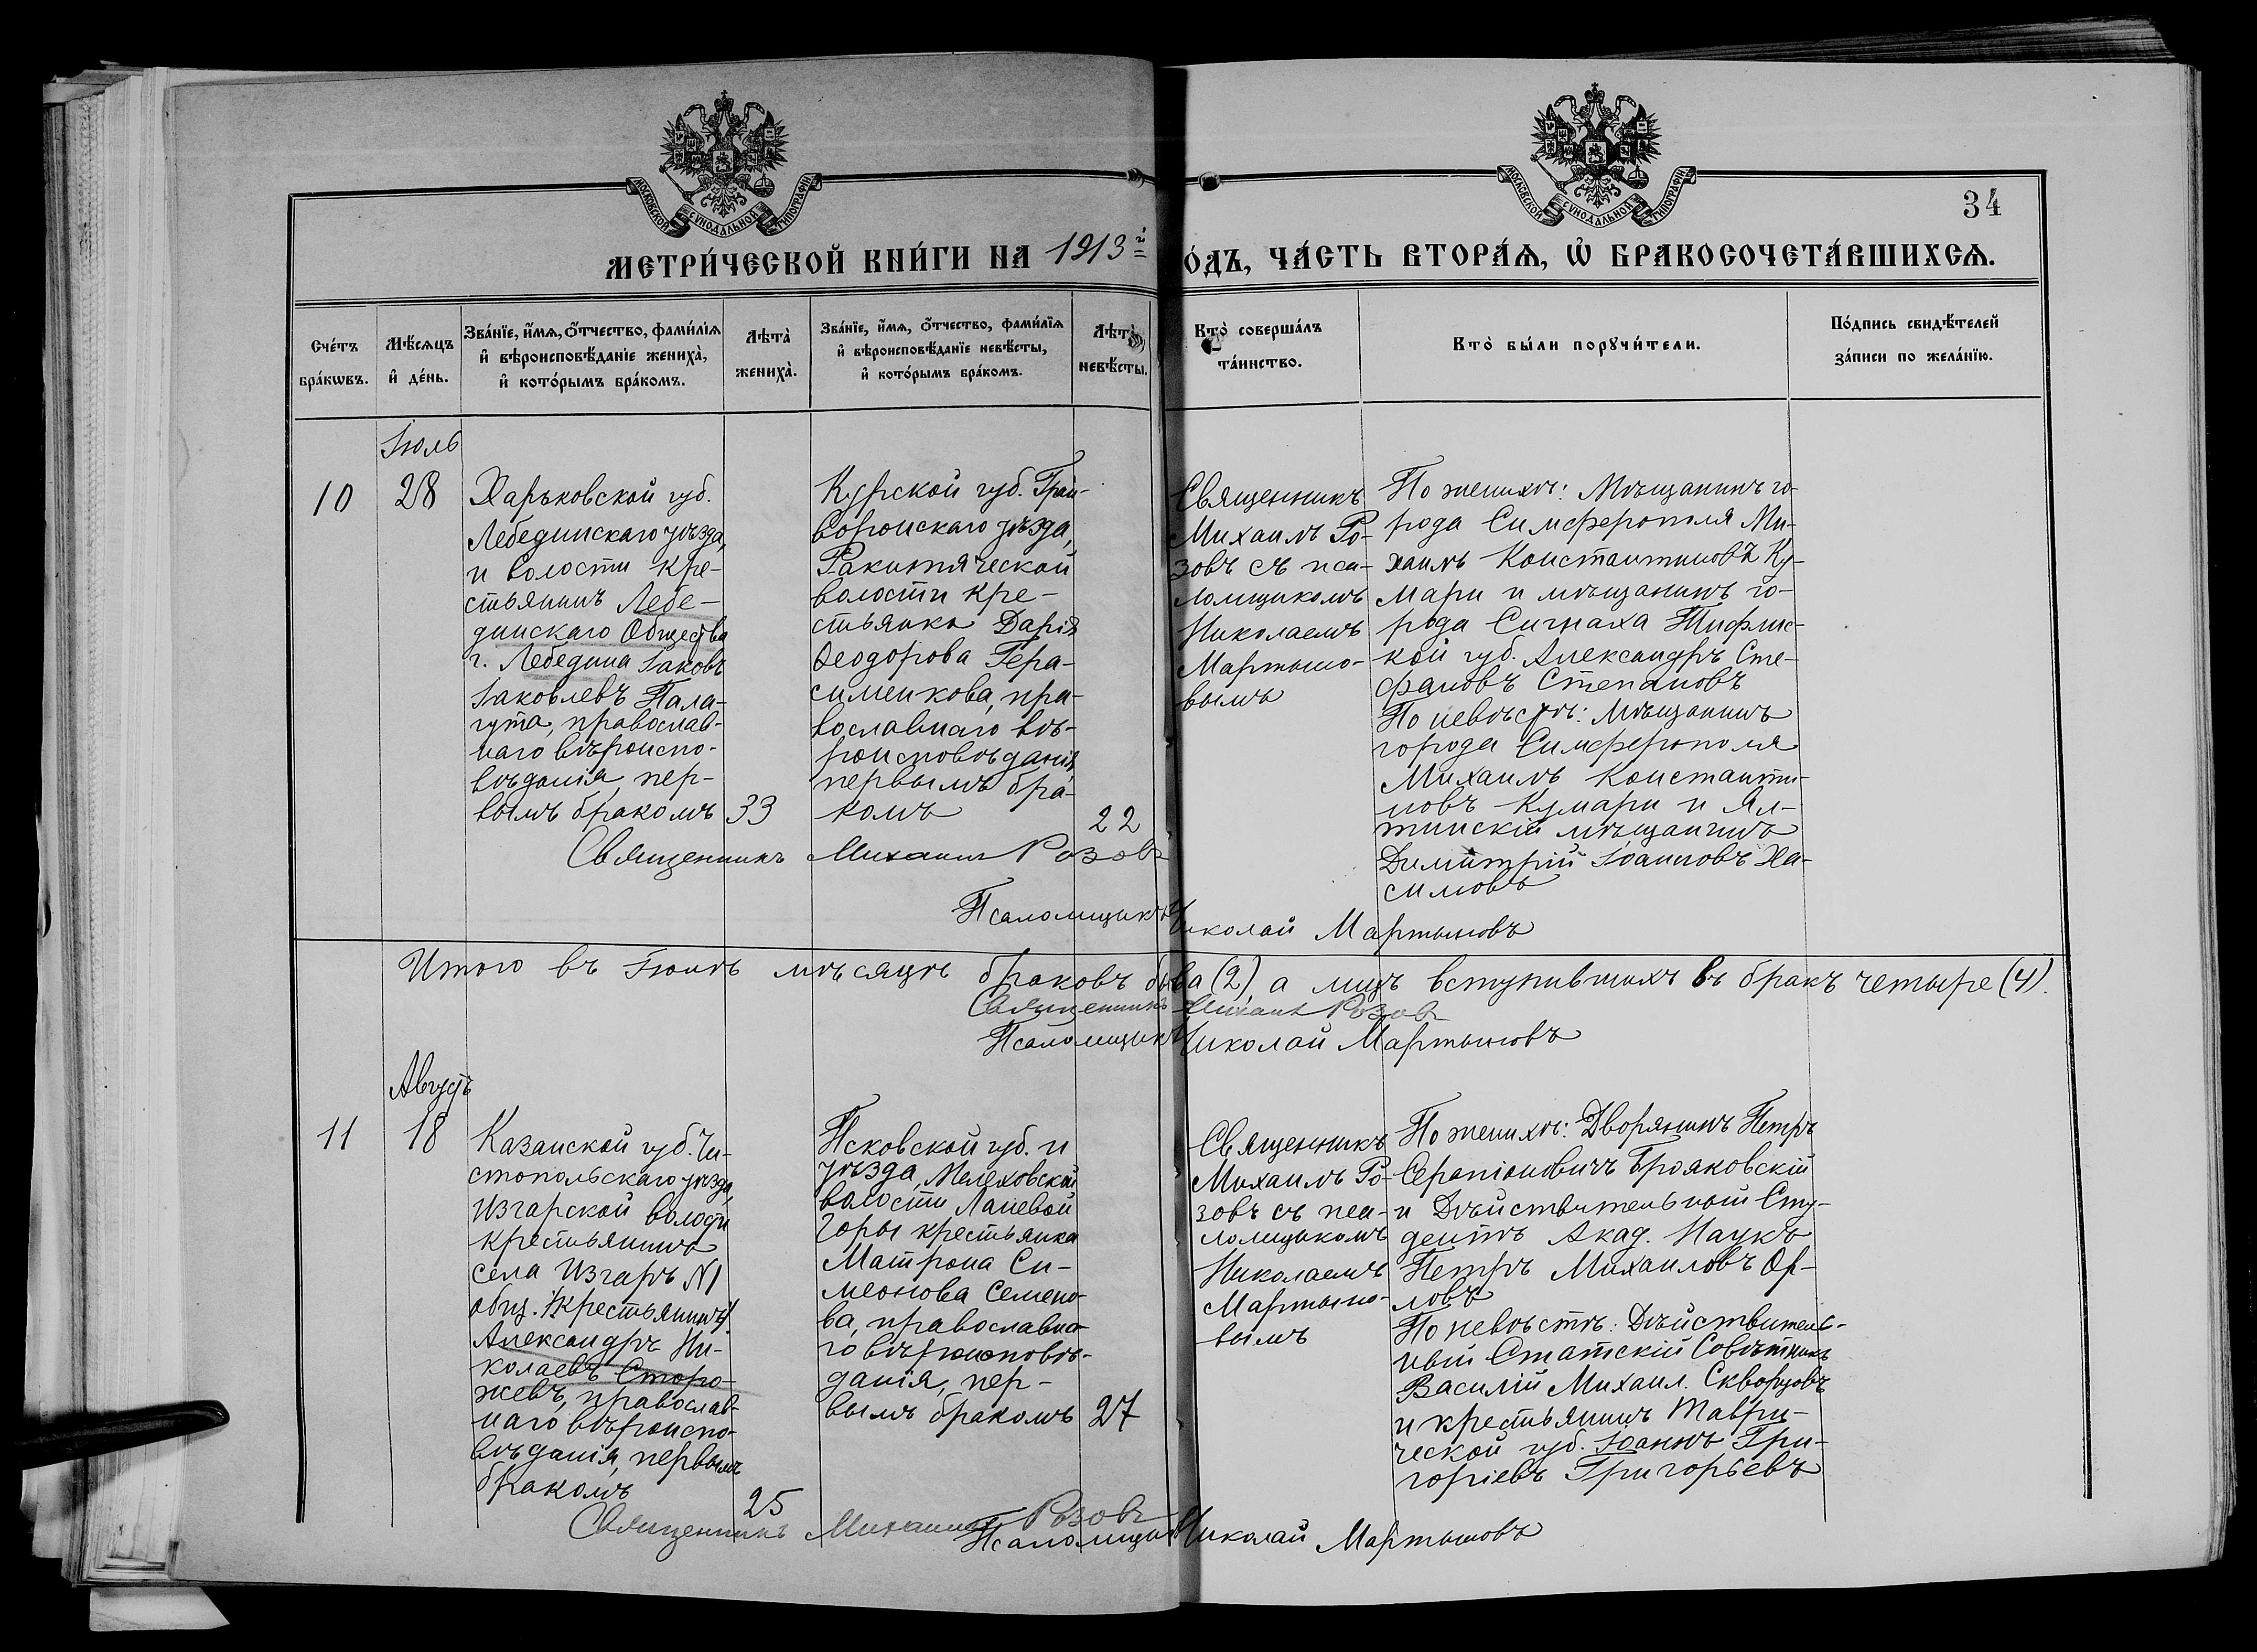 МОСКОВСКОЙ СѴНОДАЛЬНОЙ ТИПОГРАФІИ
МОСКОВСКОЙ СѴНОДАЛЬНОЙ ТИПОГРАФІИ
34
МЕТРИ́ЧЕСКОЙ КНИ́ГИ НА 1913й
О́ДЪ, ЧА́СТЬ ВТОРА́Ѧ, Ѡ҆ БРАКОСОЧЕТА́ВШИХСѦ.
Сче́тъ
бра́кѡвъ.
Мѣ́сяцъ
и҆ де́нь.
Зва́нїе, и҆́мѧ, о҆́тчество, фами́лїѧ
и҆ вѣроисповѣ́данїе жениха̀,
и҆ кото́рымъ бра́комъ.
Лѣта̀
жениха̀.
Зва́нїе, и҆́мѧ, о҆́тчество, фами́лїѧ
и҆ вѣроисповѣ́данїе невѣ́сты,
и҆ кото́рымъ бра́комъ.
Лѣта̀
невѣ́сты.
Кто̀ соверша́лъ
та́инство.
Кто̀ бы́ли порꙋчи́тели.
По́дпись свидѣ́телей
за́писи по жела́нїю.
Іюль
10
28
Харьковской губ.
Лебединскаго уѣзда,
и волости кре-
стьянинъ Лебе-
динскаго Общества
г. Лебедина Іаковъ
Іаковлевъ Пала-
гута, православ-
наго вѣроиспо-
вѣданія, пер-
вымъ бракомъ
33
Курской губ. Грай-
воронскаго уѣзда,
Ракитяческой
волости кре-
стьянка Дарія
Ѳеодорова Гера-
сименкова, пра-
вославнаго вѣ-
роисповѣданія
первымъ бра-
комъ
22
Священникъ
Михаилъ Ро-
зовъ съ пса-
ломщикомъ
Николаемъ
Мартыно-
вымъ
По женихѣ: Мѣщанинъ го-
рода Симферополя Ми-
хаилъ Константиновъ Ку-
мари и мѣщанинъ го-
рода Сигнаха Тифлис-
кой губ. Александръ Сте-
фановъ Степановъ
По невѣстѣ: Мѣщанинъ
города Симферополя
Михаилъ Константи-
новъ Кумари и Ял-
тинскій мѣщанинъ
Димитрій Іоанновъ Ха-
симовъ
Священникъ Михаилъ Розовъ
Псаломщикъ Николай Мартыновъ
Итого въ Іюлѣ мѣсяцѣ браковъ два (2), а лицъ вступившихъ въ бракъ четыре (4).
Священникъ Михаилъ Розовъ
Псаломщикъ Николай Мартыновъ
Августъ
11
18
Казанской губ. Чи-
стопольскаго уѣзда,
Изгарской волости
крестьянинъ
села Изгаръ №1
общ. /крестьянинъ/
Александръ Ни-
колаевъ Сторо-
жевъ, православ-
наго вѣроиспо-
вѣданія, первымъ
бракомъ
25
Псковской губ. и
уѣзда, Мелеховской
волости Ланевой
Горы крестьянка
Матрона Си-
меонова Семено-
ва, православна-
го вѣроисповѣ-
данія, пер-
вымъ бракомъ
27
Священникъ
Михаилъ Ро-
зовъ съ пса-
ломщикомъ
Николаемъ
Мартыно-
вымъ
По женихѣ: Дворянинъ Петръ
Серапіоновичъ Брояковскій
и Дѣйствительный Сту-
дентъ Акад. Наукъ
Петръ Михаиловъ Ор-
ловъ
По невѣстѣ: Дѣйствитель-
ный Статскій Совѣтникъ
Василій Михаил. Скворцовъ
и крестьянинъ Таври-
ческой губ. Іоаннъ Гри-
горіевъ Григорьевъ
Священникъ Михаилъ Розовъ
Псаломщикъ Николай Мартыновъ